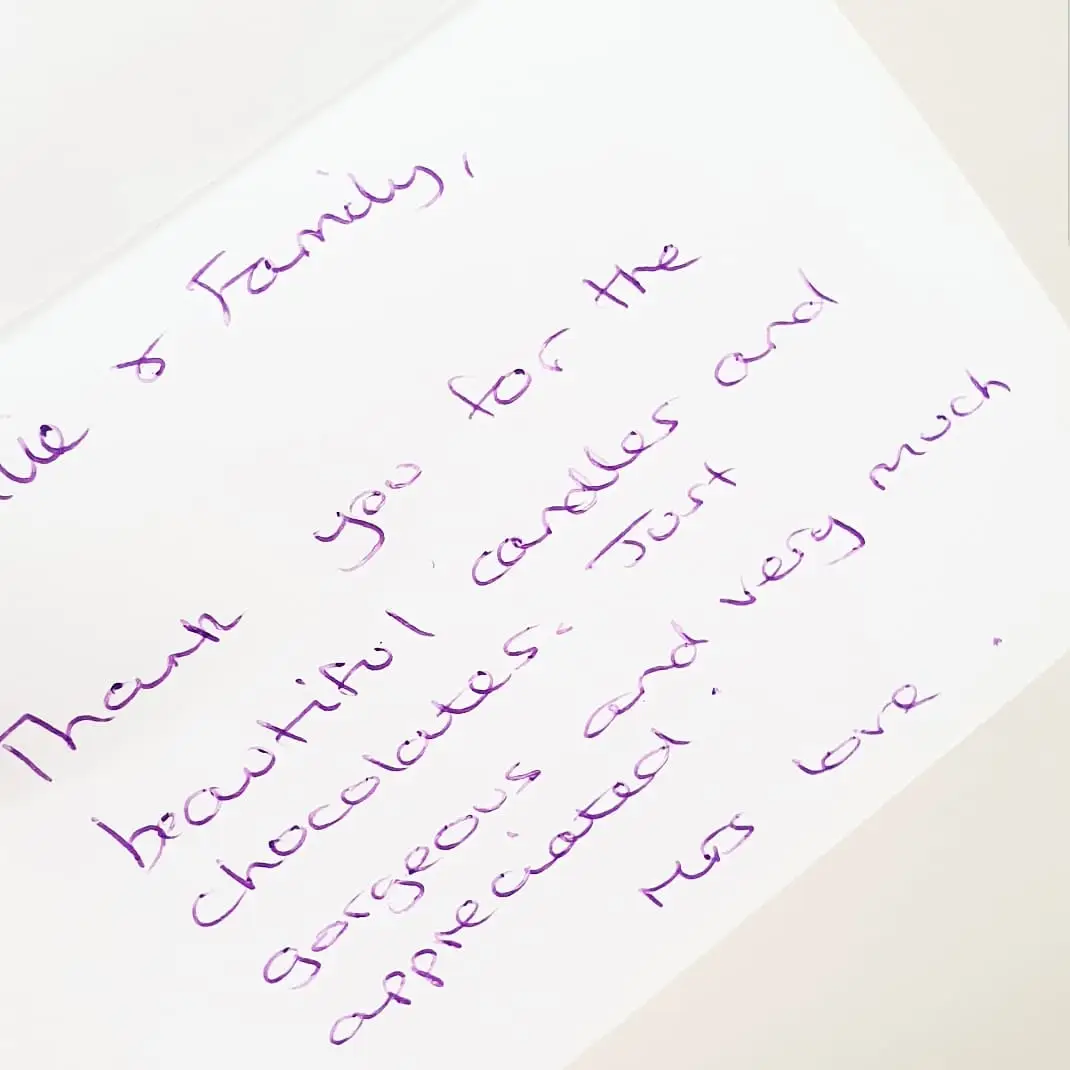 & Family,
Thank you for the
beautiful candles and
chocolates. Just
gorgeous and very much
appreciated.
love